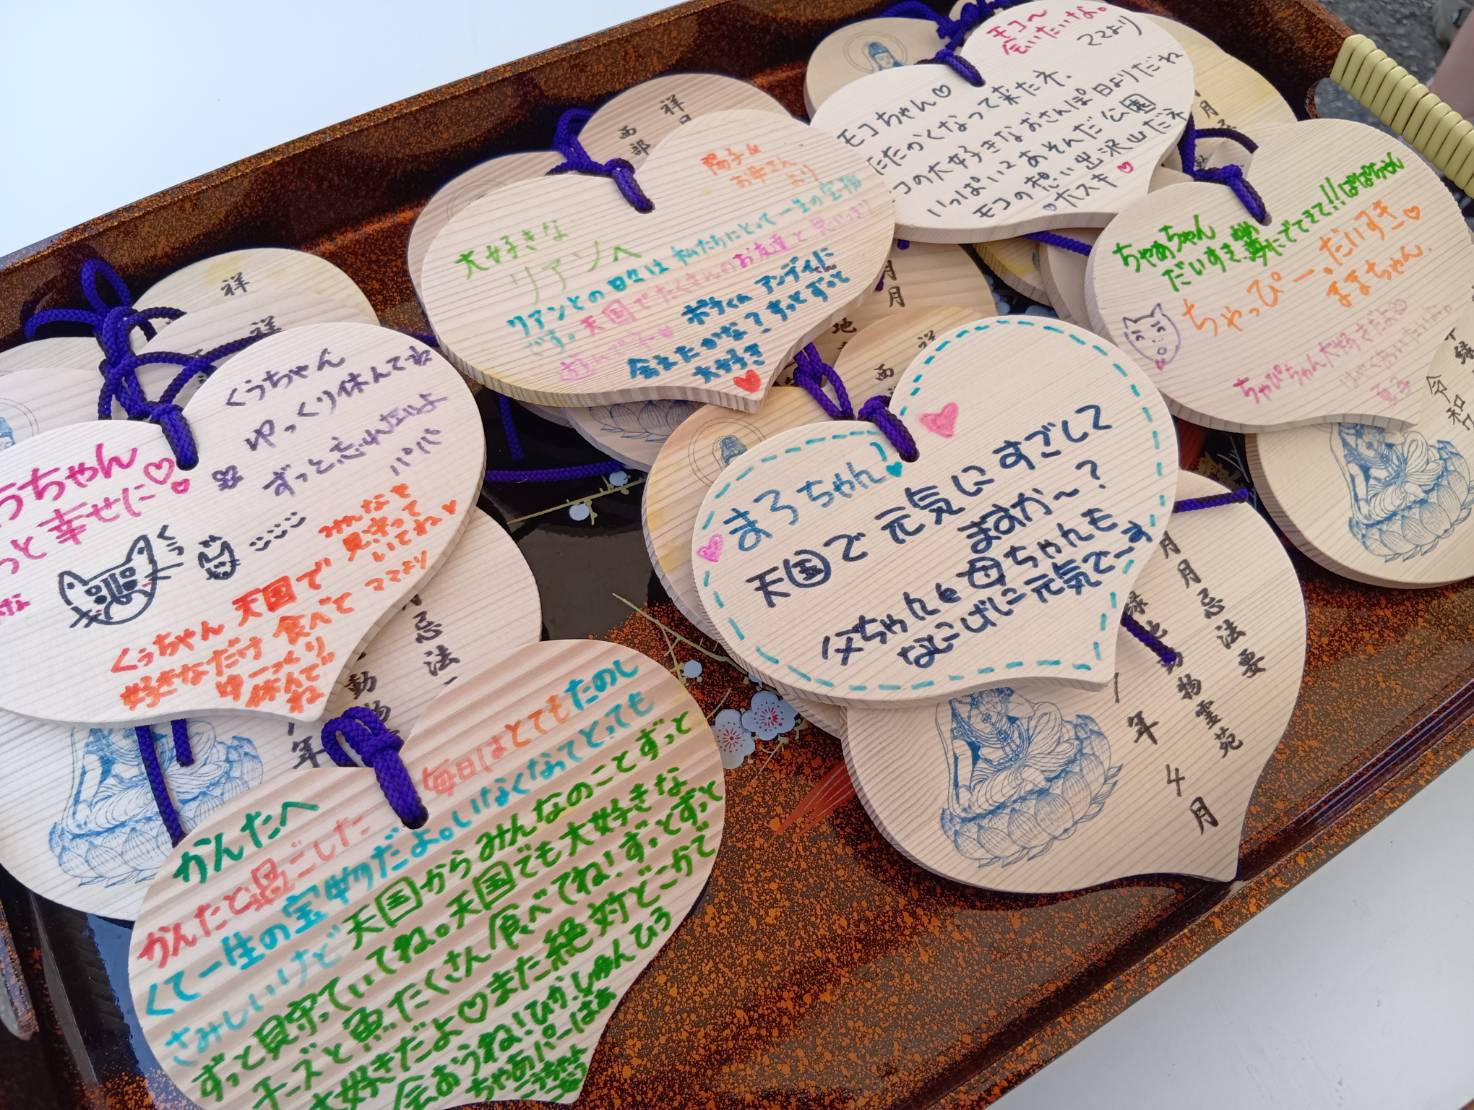 モコ〜
会いたいな。
ママより
モコちゃん♡
たたかくなって来たネ、
コの大好きなおさんぽ日よりだね
いっぱいあそんだ公園
モコの想い出沢山だネ
大スキ
祥
西部
陽子&
お母さん
より
大好きな
リアンへ
リアンとの日々は私たちにとって一生の宝物
です。天国でたくさんのお友達と思いっきり
遊んでネ
ポチくん アンディに
会えたかな?ずっとずっと
大好き
ちゃあちゃん
だいすき夢にでてきて!!ばぁばちゃん
ちゃっぴー。だいすき
ままちゃん。
ちゃぴちゃん大好きだよ
祥
祥
くぅちゃん
ゆっくり休んでね
ずっと忘れないよ
パパ
うちゃん♡
っと幸せに♡
みんなを
見守って
いてね
ママより
くぅちゃん 天国で
好きなだけ食べて
ゆーっくり
休んで
ね
まろちゃん!
天国で元気にすごして
ますか〜?
父ちゃんも母ちゃんも
なにげに元気でーす
月月忌法要
緑地動物霊苑
年 4月
忌法
動物
年
令和
かんたへ
かんたと過ごした毎日はとてもたのし
くて一生の宝物だよ。いなくなってとっても
さみしいけど天国からみんなのことずっと
ずっと見守っていてね。天国でも大好きな
チーズと魚たくさん食べてね!ずっとずっと
大好きだよ♡また絶対どこかで
会おうね!